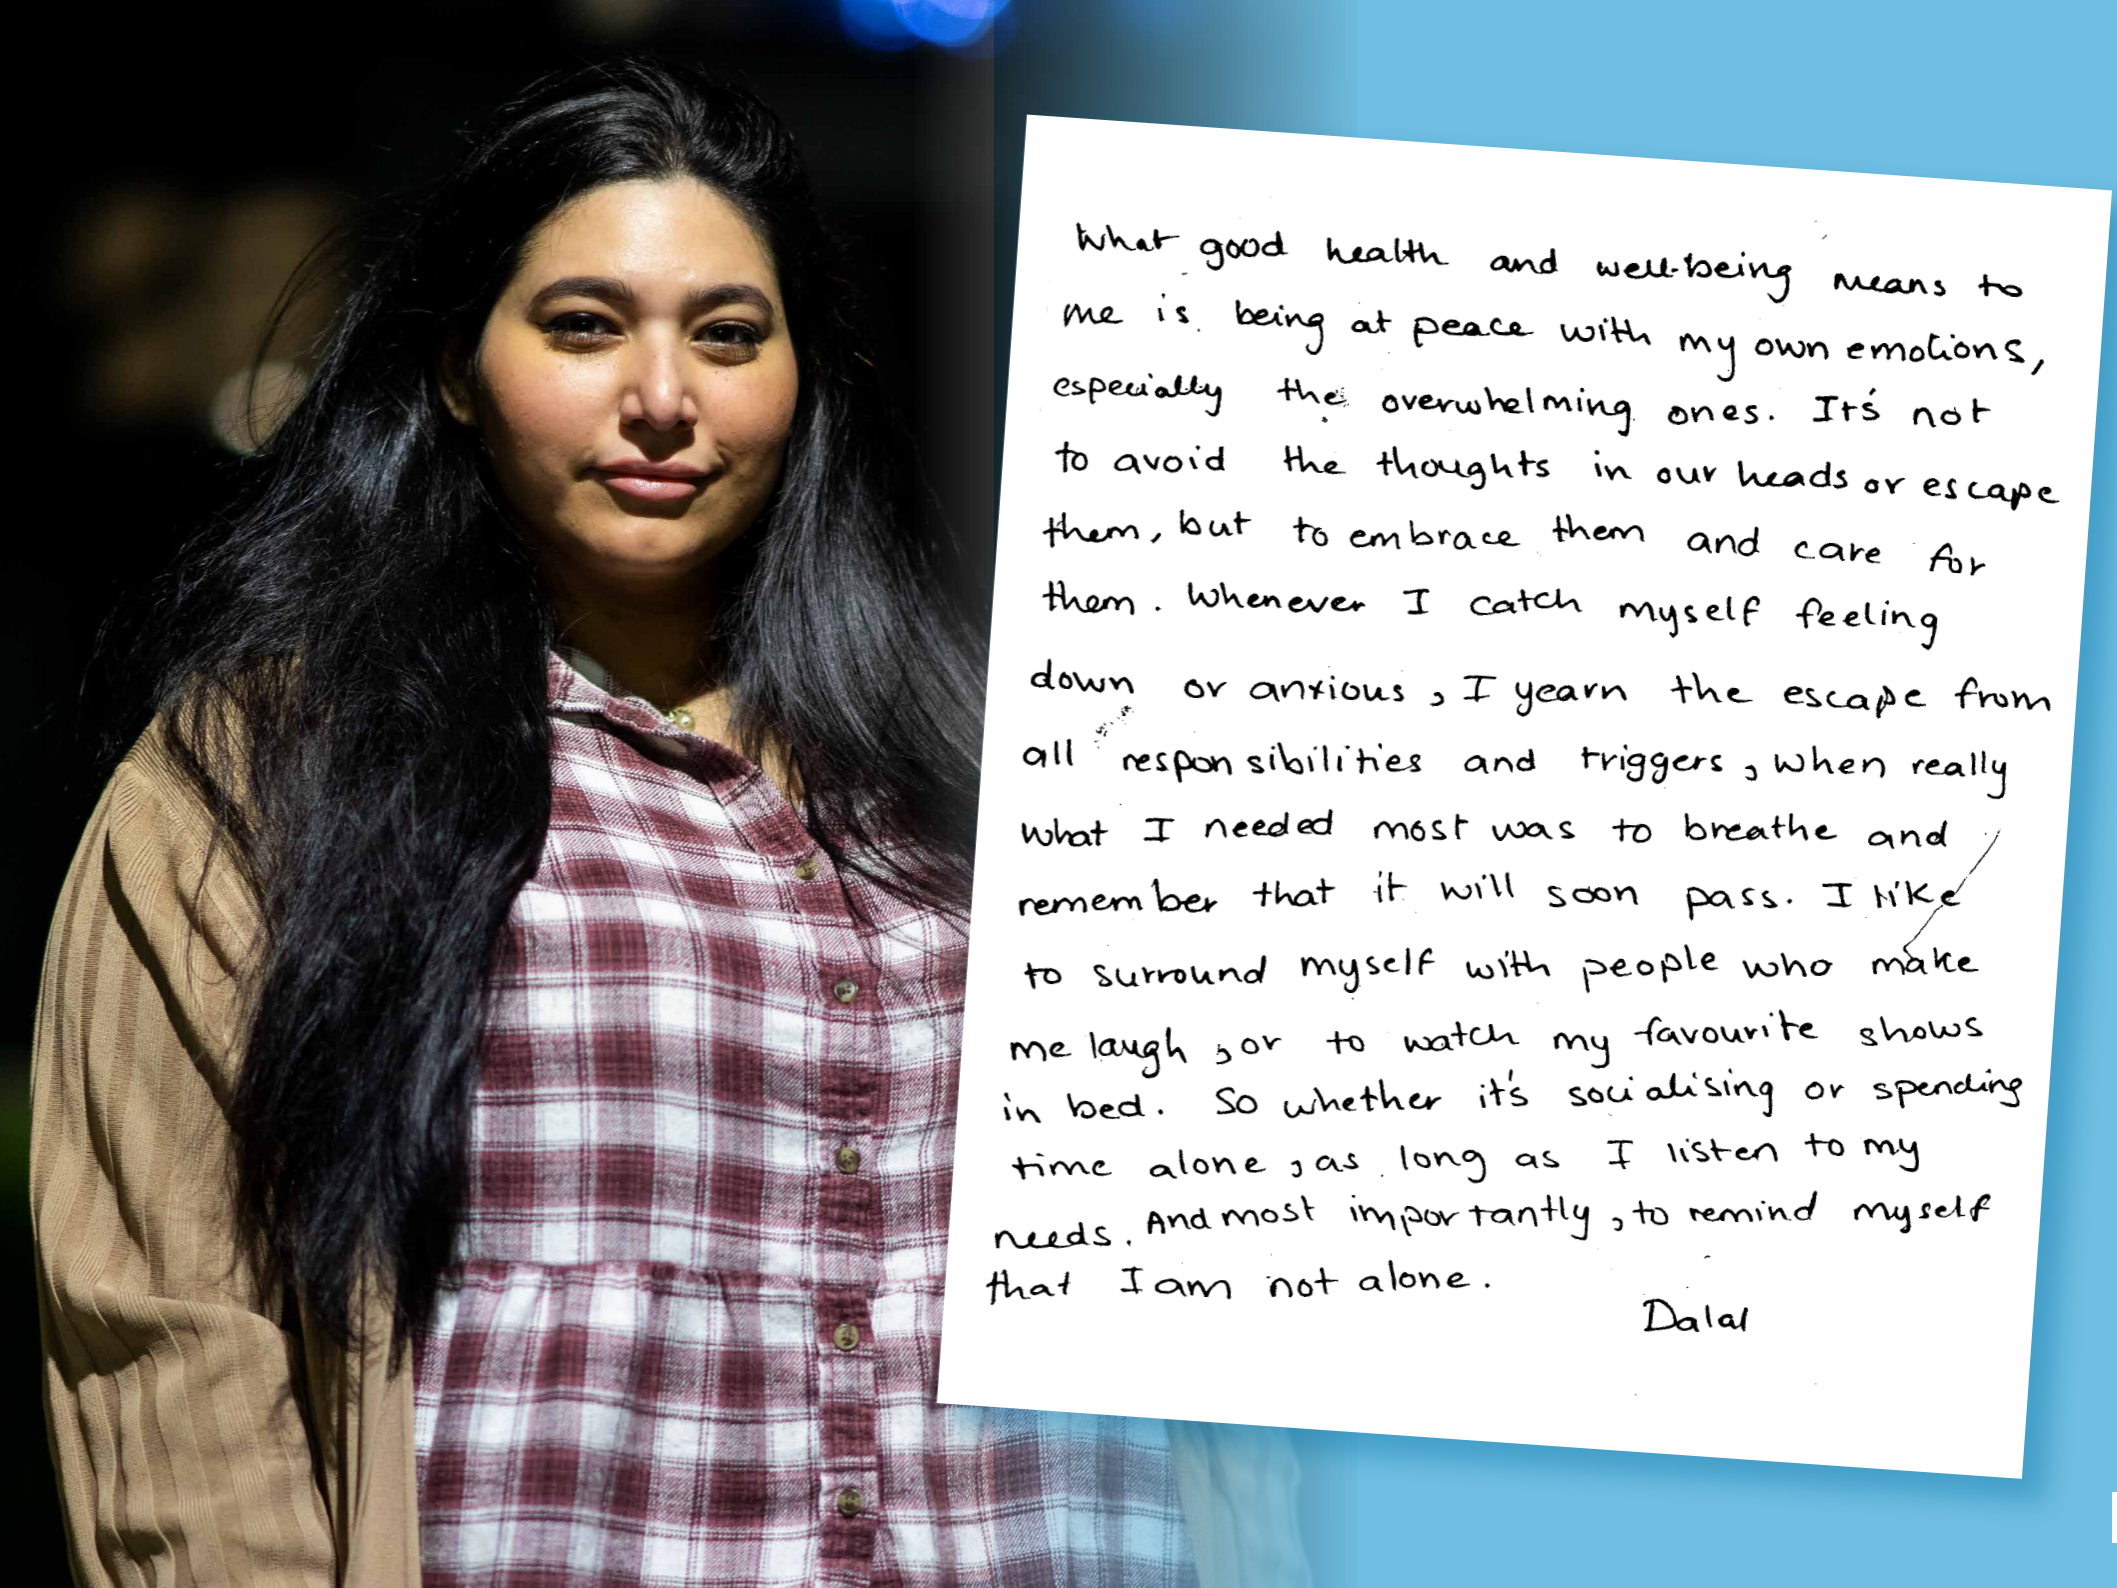 What good health and well-being means to
me is being at peace with my own emotions,
especially the overwhelming ones. It's not
to avoid the thoughts in our heads or escape
them, but to embrace them and care for
them. Whenever I catch myself feeling
down or anxious, I yearn the escape from
all responsibilities and triggers, when really
what I needed most was to breathe and
remember that it will soon pass. I like
to surround myself with people who make
me laugh, or to watch my favourite shows
in bed. So whether it's socialising or spending
time alone, as long as I listen to my
needs. And most importantly, to remind myself
that I am not alone.
Dalal